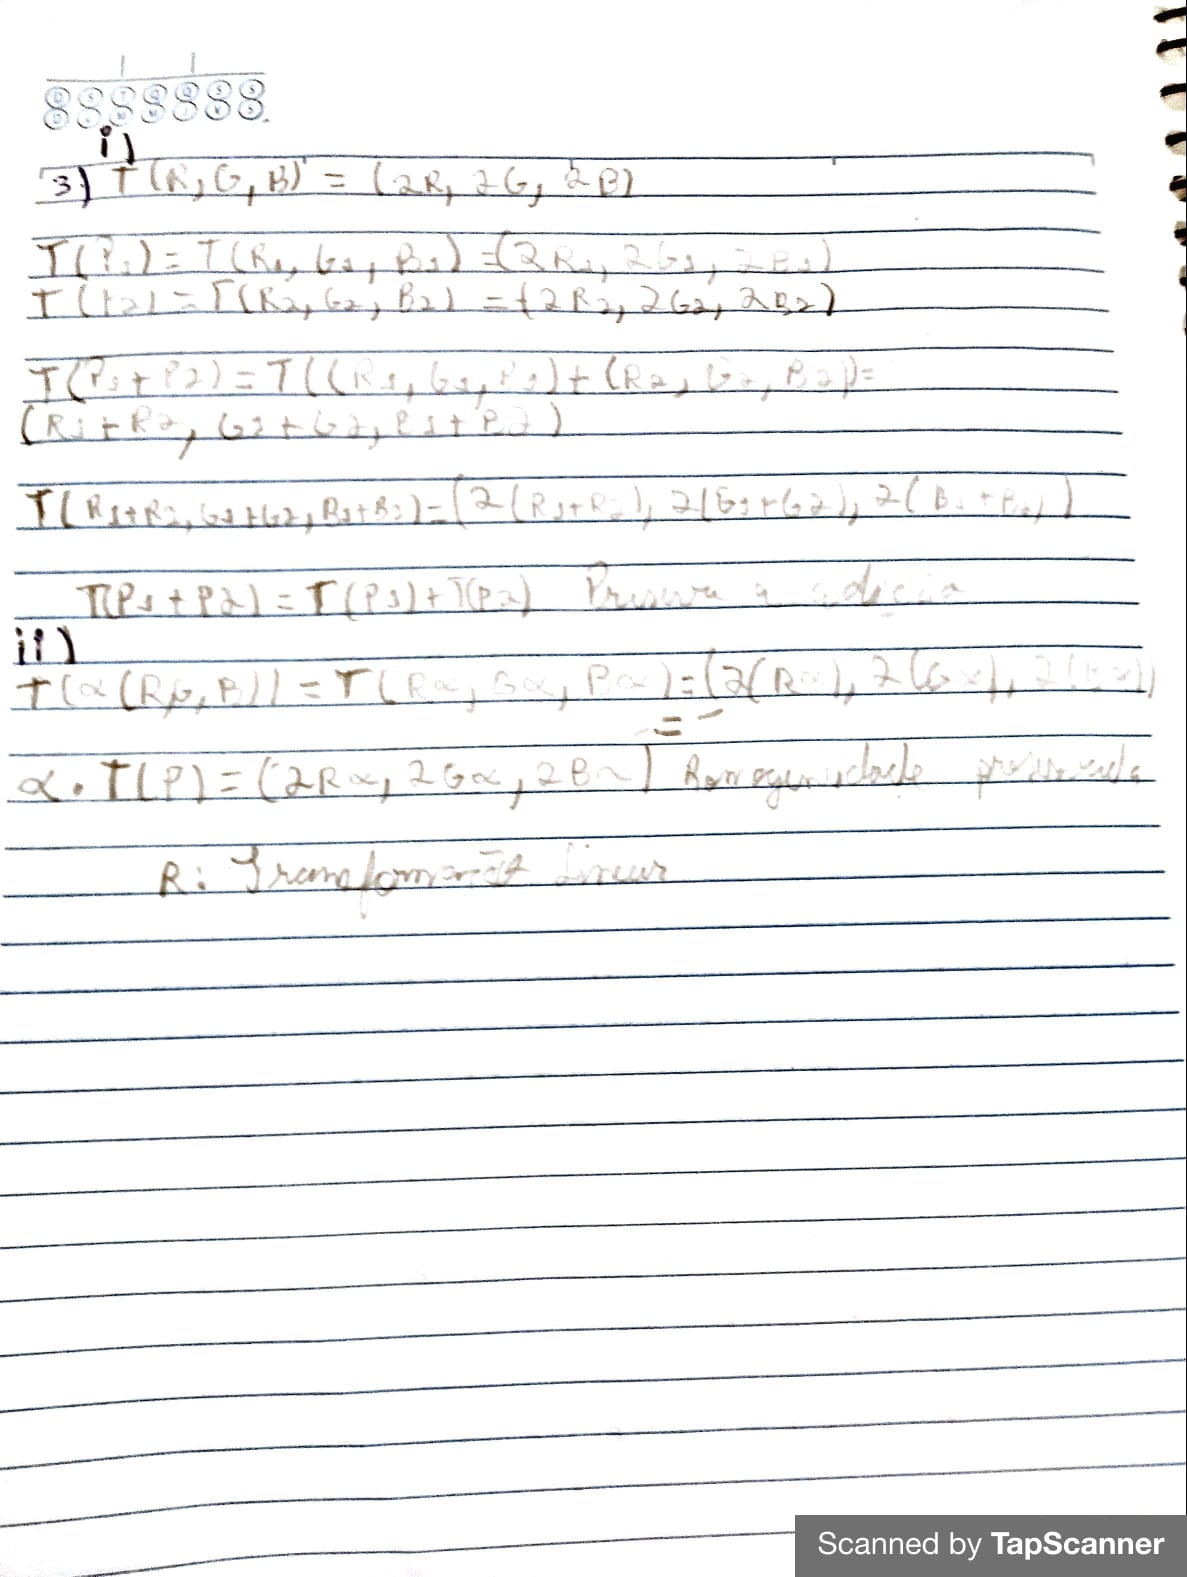 i)
3) T(R, G, B) = (2R, 2G, 2B)
T(P1) = T(R1, G1, B1) = (2R1, 2G1, 2B1)
T(P2) = T(R2, G2, B2) = (2R2, 2G2, 2B2)
T(P1 + P2) = T((R1, G1, B1) + (R2, G2, B2)) =
(R1 + R2, G1 + G2, B1 + B2)
T(R1+R2, G1+G2, B1+B2) = (2(R1+R2), 2(G1+G2), 2(B1+B2))
T(P1 + P2) = T(P1) + T(P2) Preserva a adição
ii)
T(α(R,G,B)) = T(Rα, Gα, Bα) = (2(Rα), 2(Gα), 2(Bα))
=
α. T(P) = (2Rα, 2Gα, 2Bα) Homogeneidade preservada
R: Transformação Linear
Scanned by TapScanner